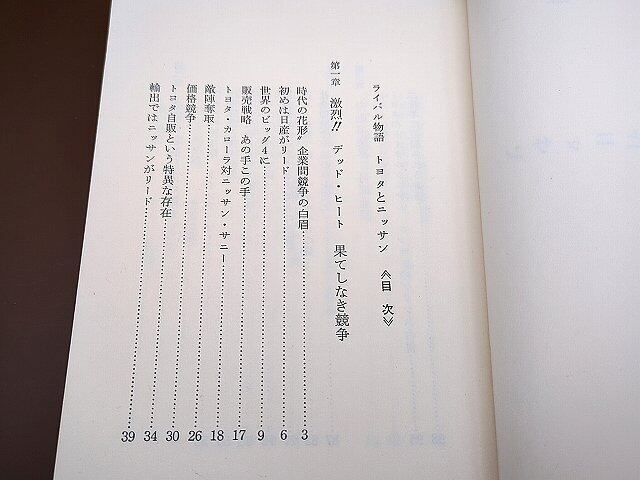 ライバル物語 トヨタとニッサン 《目次》
第一章 激烈!! デッド・ヒート 果てしなき競争
時代の花形〝企業間競争の白眉……3
初めは日産がリード……6
世界のビッグ4に……9
販売戦略 あの手この手……17
トヨタ・カローラ対ニッサン・サニー……18
敵陣奪取……26
価格競争……30
トヨタ自販という特異な存在……34
輸出ではニッサンがリード……39